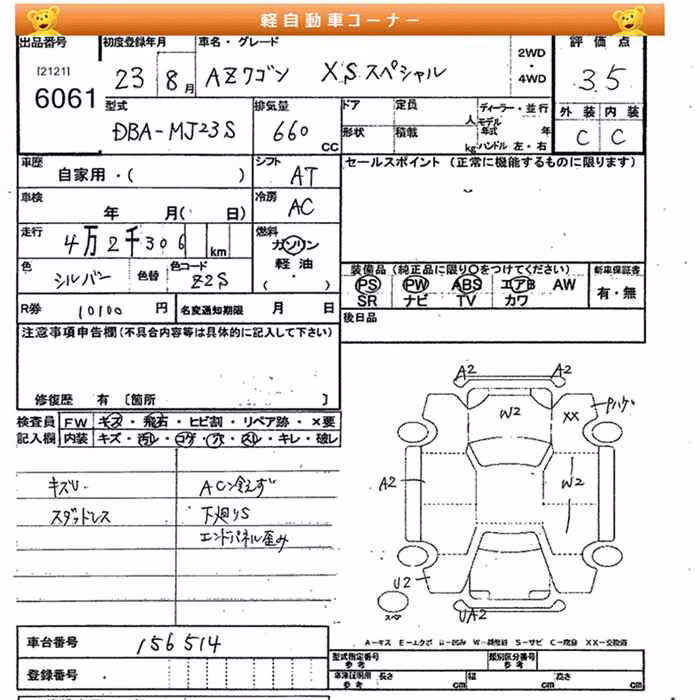 軽自動車コーナー
出品番号 初度登録年月 車名・グレード 2WD・4WD 評価点
[2121]
6061 23 8月 AZワゴン XSスペシャル 35
型式 排気量 ドア 定員 人 ディーラー・並行 外装 内装
DBA-MJ23S 660CC 形状 積載 kg モデル年式 年 ハンドル 左・右 C C
車歴 シフト セールスポイント (正常に機能するものに限ります)
自家用・( ) AT
車検 冷房
年 月( 日) AC
走行 燃料
4万2千306 km ガソリン
軽油
・( )
色 色替 色コード 装備品 (純正品に限り○をつけてください) 新車保証書
シルバー Z2S PS PW ABS エアB AW 有・無
SR ナビ TV カワ
R券 10100円 名変通知期限 月 日 後日品
注意事項申告欄(不具合内容等は具体的に記入して下さい)
修復歴 有 〔箇所 〕
検査員 FW キズ・飛石・ヒビ割・リペア跡・×要
記入欄 内装 キズ・汚レ・コゲ・穴・スレ・キレ・破レ
キズU ACン冷えず
スタッドレス 下廻りS
エンドパネル歪み
A2 A2
W2 XX Pハゲ
A2 W2
U2
スペア UA2
A-キズ E-エクボ U-凹み W-補修跡 S-サビ C-腐食 XX-交換済
車台番号 156514
型式指定番号 参考 類別区分番号 参考
登録番号 車庫証明用 参考 長さ cm 幅 cm 高さ cm